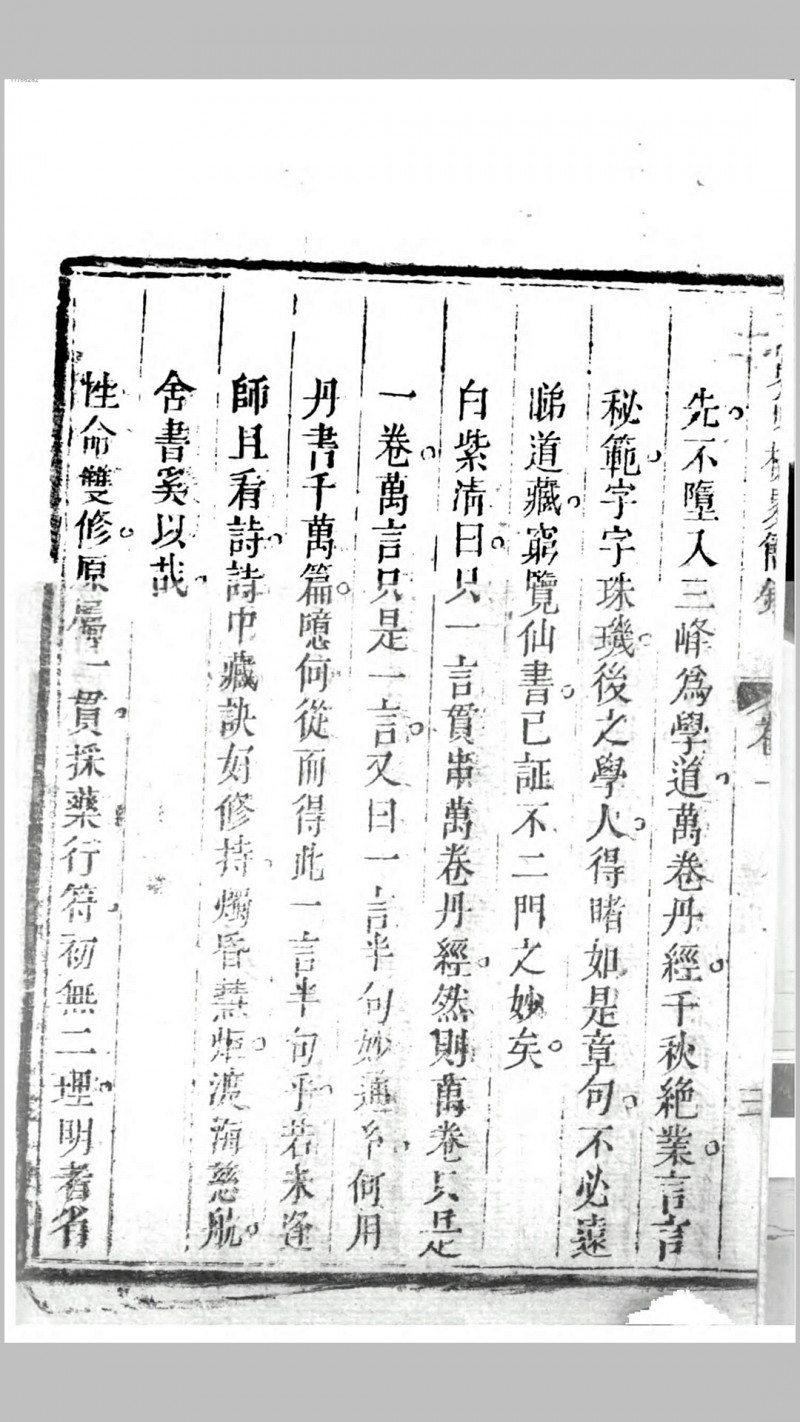 先。不墮入三峰為學道。萬卷丹經。千秋絕業。言言
秘範。字字珠璣。後之學人。得睹如是章句。不必遠
睇道藏。窮覽仙書。已証不二門之妙矣。
白紫清曰。只一言貫串萬卷丹經。然則萬卷只是
一卷。萬言只是一言。又曰一言半句妙通。何用
丹書千萬篇。噫何從而得此一言半句乎。若未逢
師且看詩。詩中藏訣好修持。燭昏慧炬。渡海慈航。
舍書奚以哉。
性命雙修。原屬一貫。採藥行符。初無二理。明者省
卷一
三